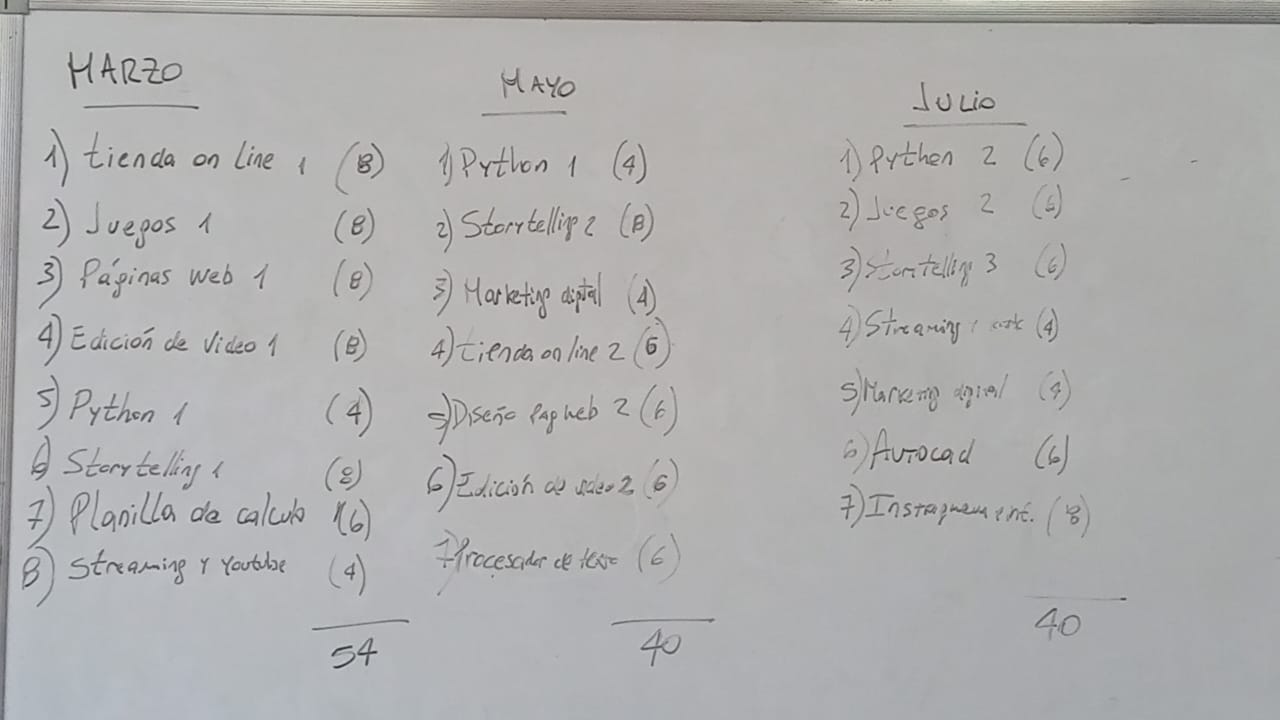 MARZO
1) tienda on line 1 (8)
2) Juegos 1 (8)
3) Páginas web 1 (8)
4) Edición de video 1 (8)
5) Python 1 (4)
6) Storytelling 1 (8)
7) Planilla de calculo 1 (6)
8) Streaming y Youtube (4)
54
MAYO
1) Python 1 (4)
2) Storytelling 2 (8)
3) Marketing digital (4)
4) tienda on line 2 (6)
5) Diseño Pag web 2 (6)
6) Edición de video 2 (6)
7) Procesador de texto (6)
40
JULIO
1) Python 2 (6)
2) Juegos 2 (6)
3) Storytelling 3 (6)
4) Streaming (4)
5) Marketing digital (4)
6) AUTOCAD (6)
7) Instagram (8)
40